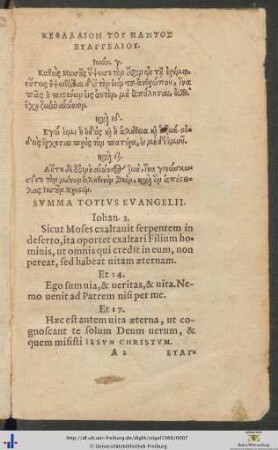 ΚΕΦΑΛΑΙΟΝ ΤΟΥ ΠΑΝΤΟΣ
ΕΥΑΓΓΕΛΙΟΥ.
Ἰωάν. γ.
Καθὼς Μωσῆς ὕψωσε τὸν ὄφιν ἐν τῇ ἐρήμῳ,
οὕτως ὑψωθῆναι δεῖ τὸν υἱὸν τοῦ ἀνθρώπου, ἵνα
πᾶς ὁ πιστεύων εἰς αὐτὸν, μὴ ἀπόληται, ἀλλ'
ἔχῃ ζωὴν αἰώνιον.
καὶ ιδ.
Ἐγώ εἰμι ἡ ὁδὸς καὶ ἡ ἀλήθεια καὶ ἡ ζωή. οὐ
δεὶς ἔρχεται πρὸς τὸν πατέρα, εἰ μὴ δι' ἐμοῦ.
καὶ ιζ.
Αὕτη δέ ἐστιν ἡ αἰώνιος ζωὴ, ἵνα γινώσκω-
σί σε τὸν μόνον ἀληθινὸν θεὸν, καὶ ὃν ἀπέστει-
λας Ἰησοῦν Χριστόν.
SVMMA TOTIVS EVANGELII.
Iohan. 3.
Sicut Moses exaltauit serpentem in
deserto, ita oportet exaltari Filium ho
minis, ut omnis qui credit in eum, non
pereat, sed habeat uitam æternam.
Et 14.
Ego sum uia, & ueritas, & uita. Ne-
mo uenit ad Patrem nisi per me.
Et 17.
Hæc est autem uita æterna, ut co-
gnoscant te solum Deum uerum, &
quem misisti IESVN CHRISTVM.
A 2 ΕΥΑΓ-
http://dl.ub.uni-freiburg.de/diglit/
© Universitätsbibliothek Freiburg
Baden-Württemberg